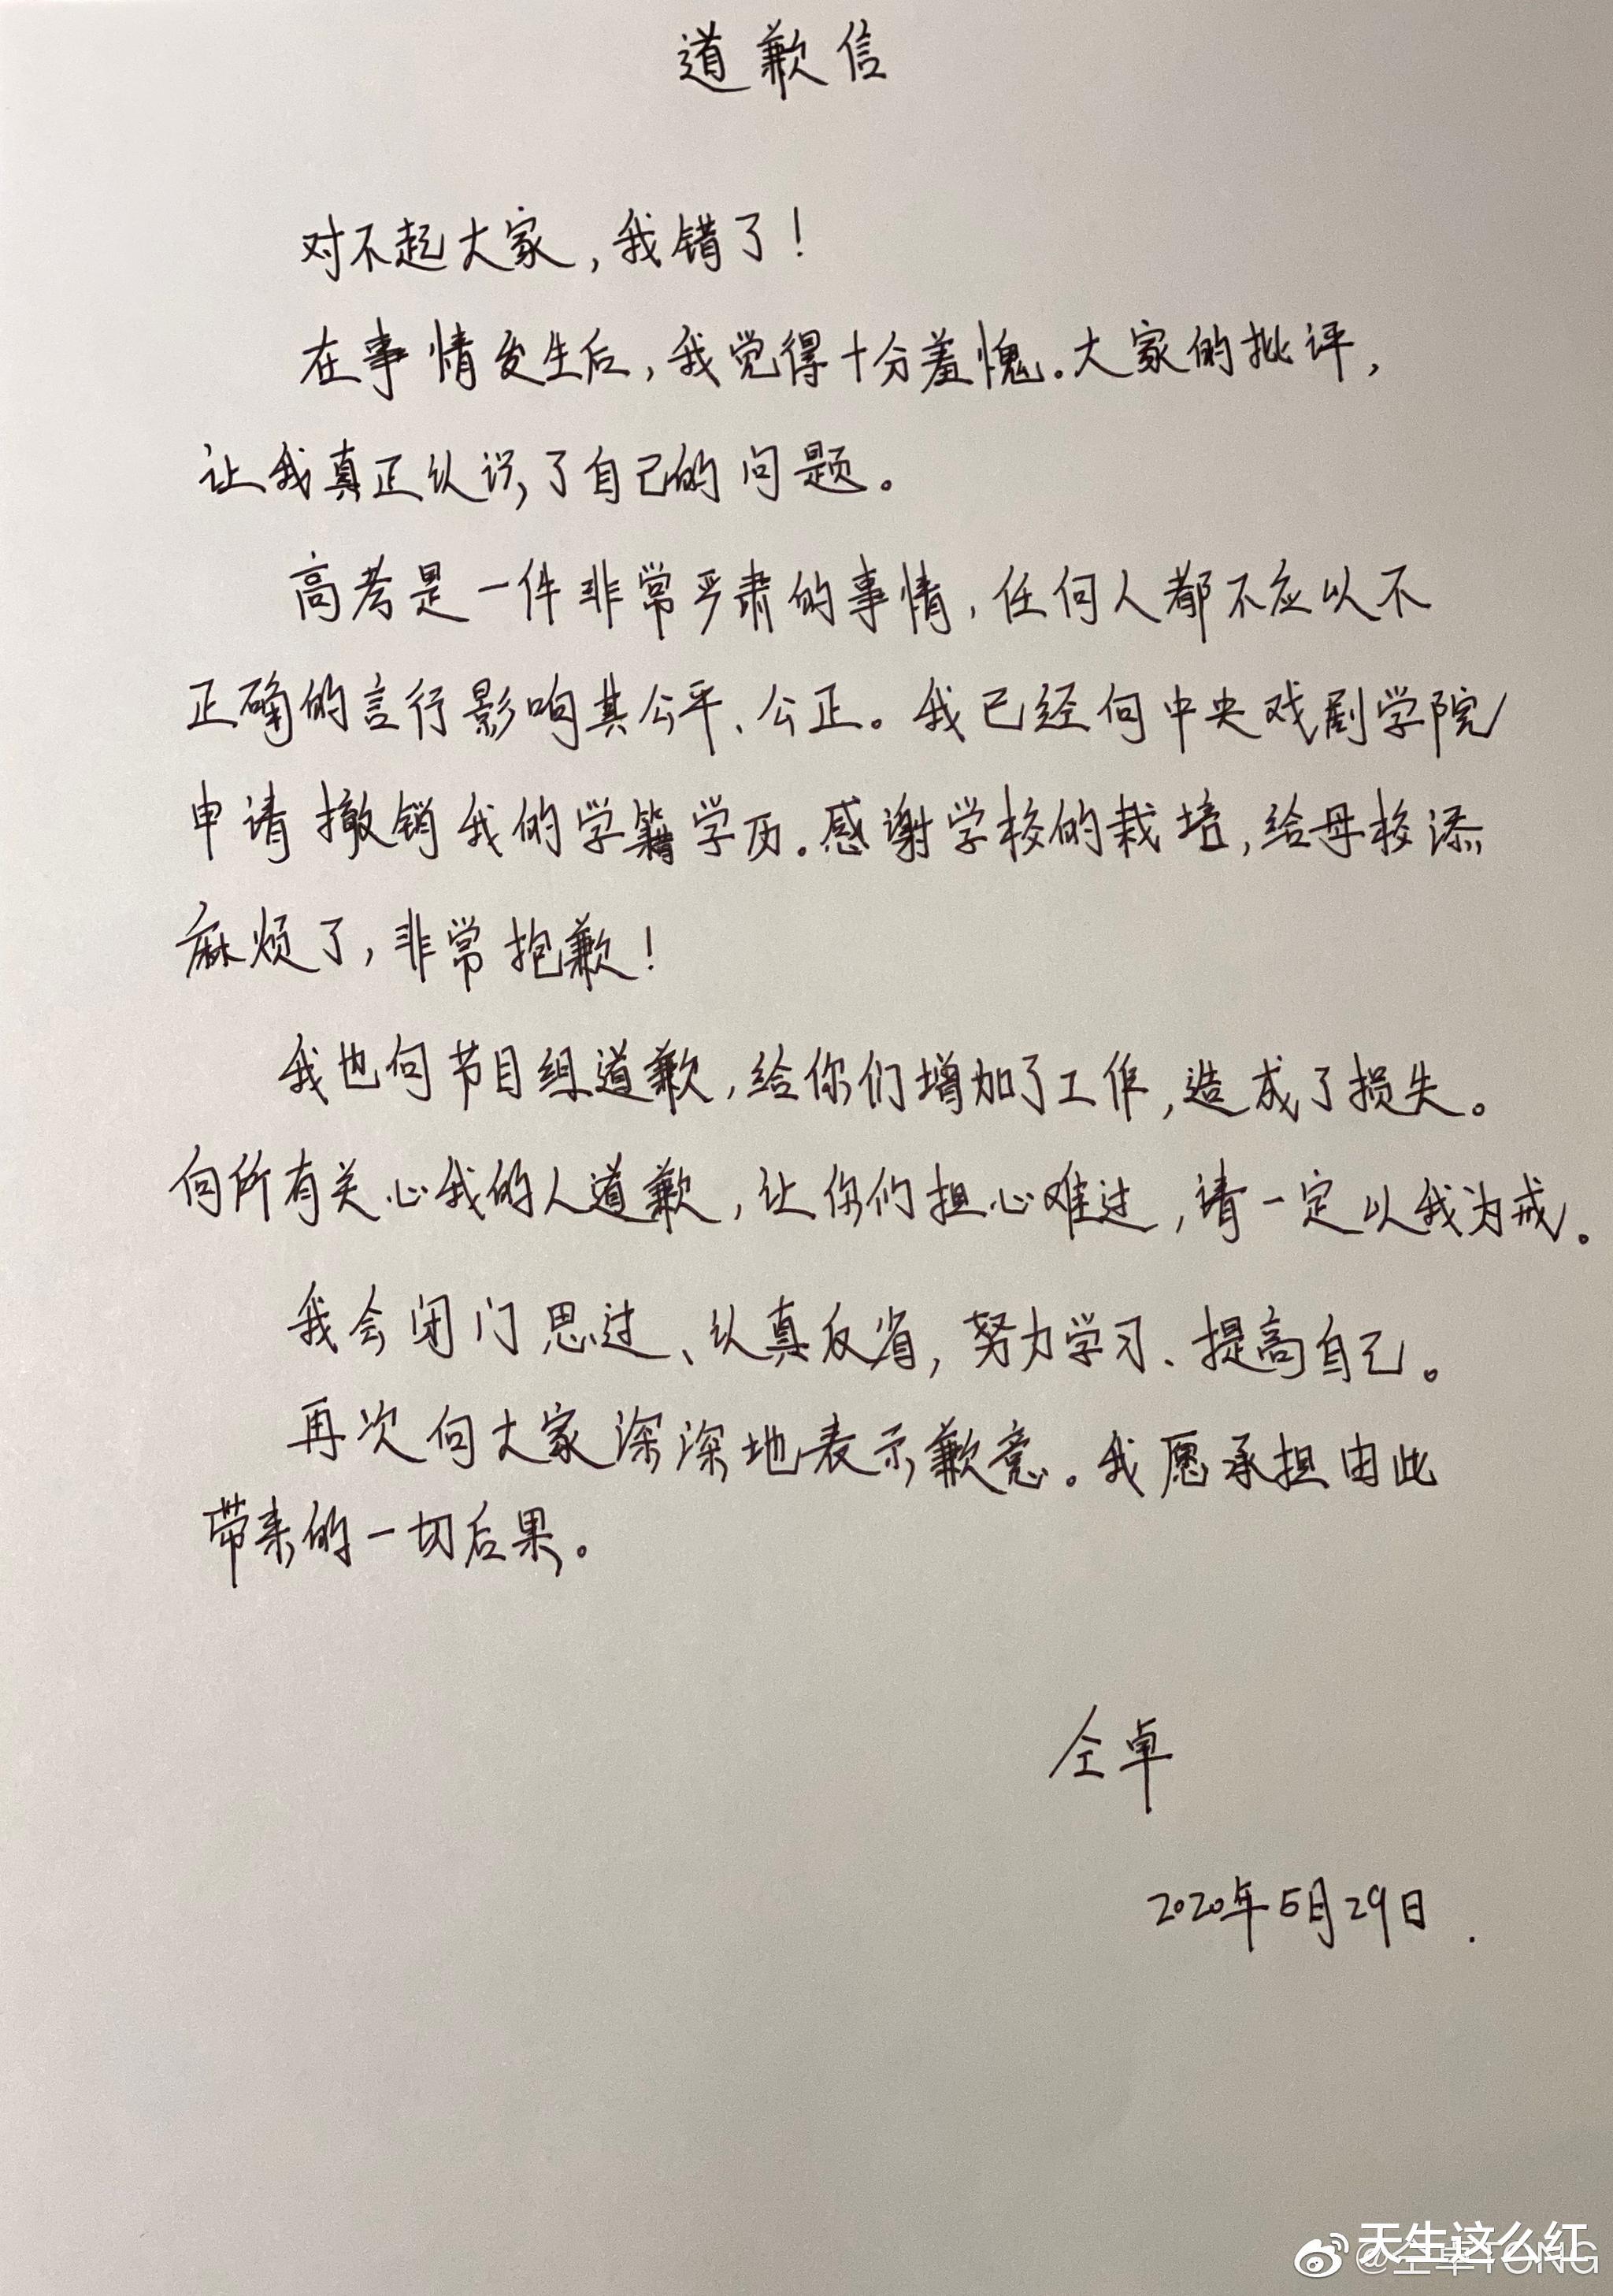 道歉信
对不起大家,我错了!
在事情发生后,我觉得十分羞愧。大家的批评,
让我真正认识了自己的问题。
高考是一件非常严肃的事情,任何人都不应以不
正确的言行影响其公平、公正。我已经向中央戏剧学院
申请撤销我的学籍学历。感谢学校的栽培,给母校添
麻烦了,非常抱歉!
我也向节目组道歉,给你们增加了工作,造成了损失。
向所有关心我的人道歉,让你们担心难过,请一定以我为戒。
我会闭门思过、认真反省,努力学习、提高自己。
再次向大家深深地表示歉意。我愿承担由此
带来的一切后果。
仝卓
2020年5月29日.
天生这么红
@仝卓TONG